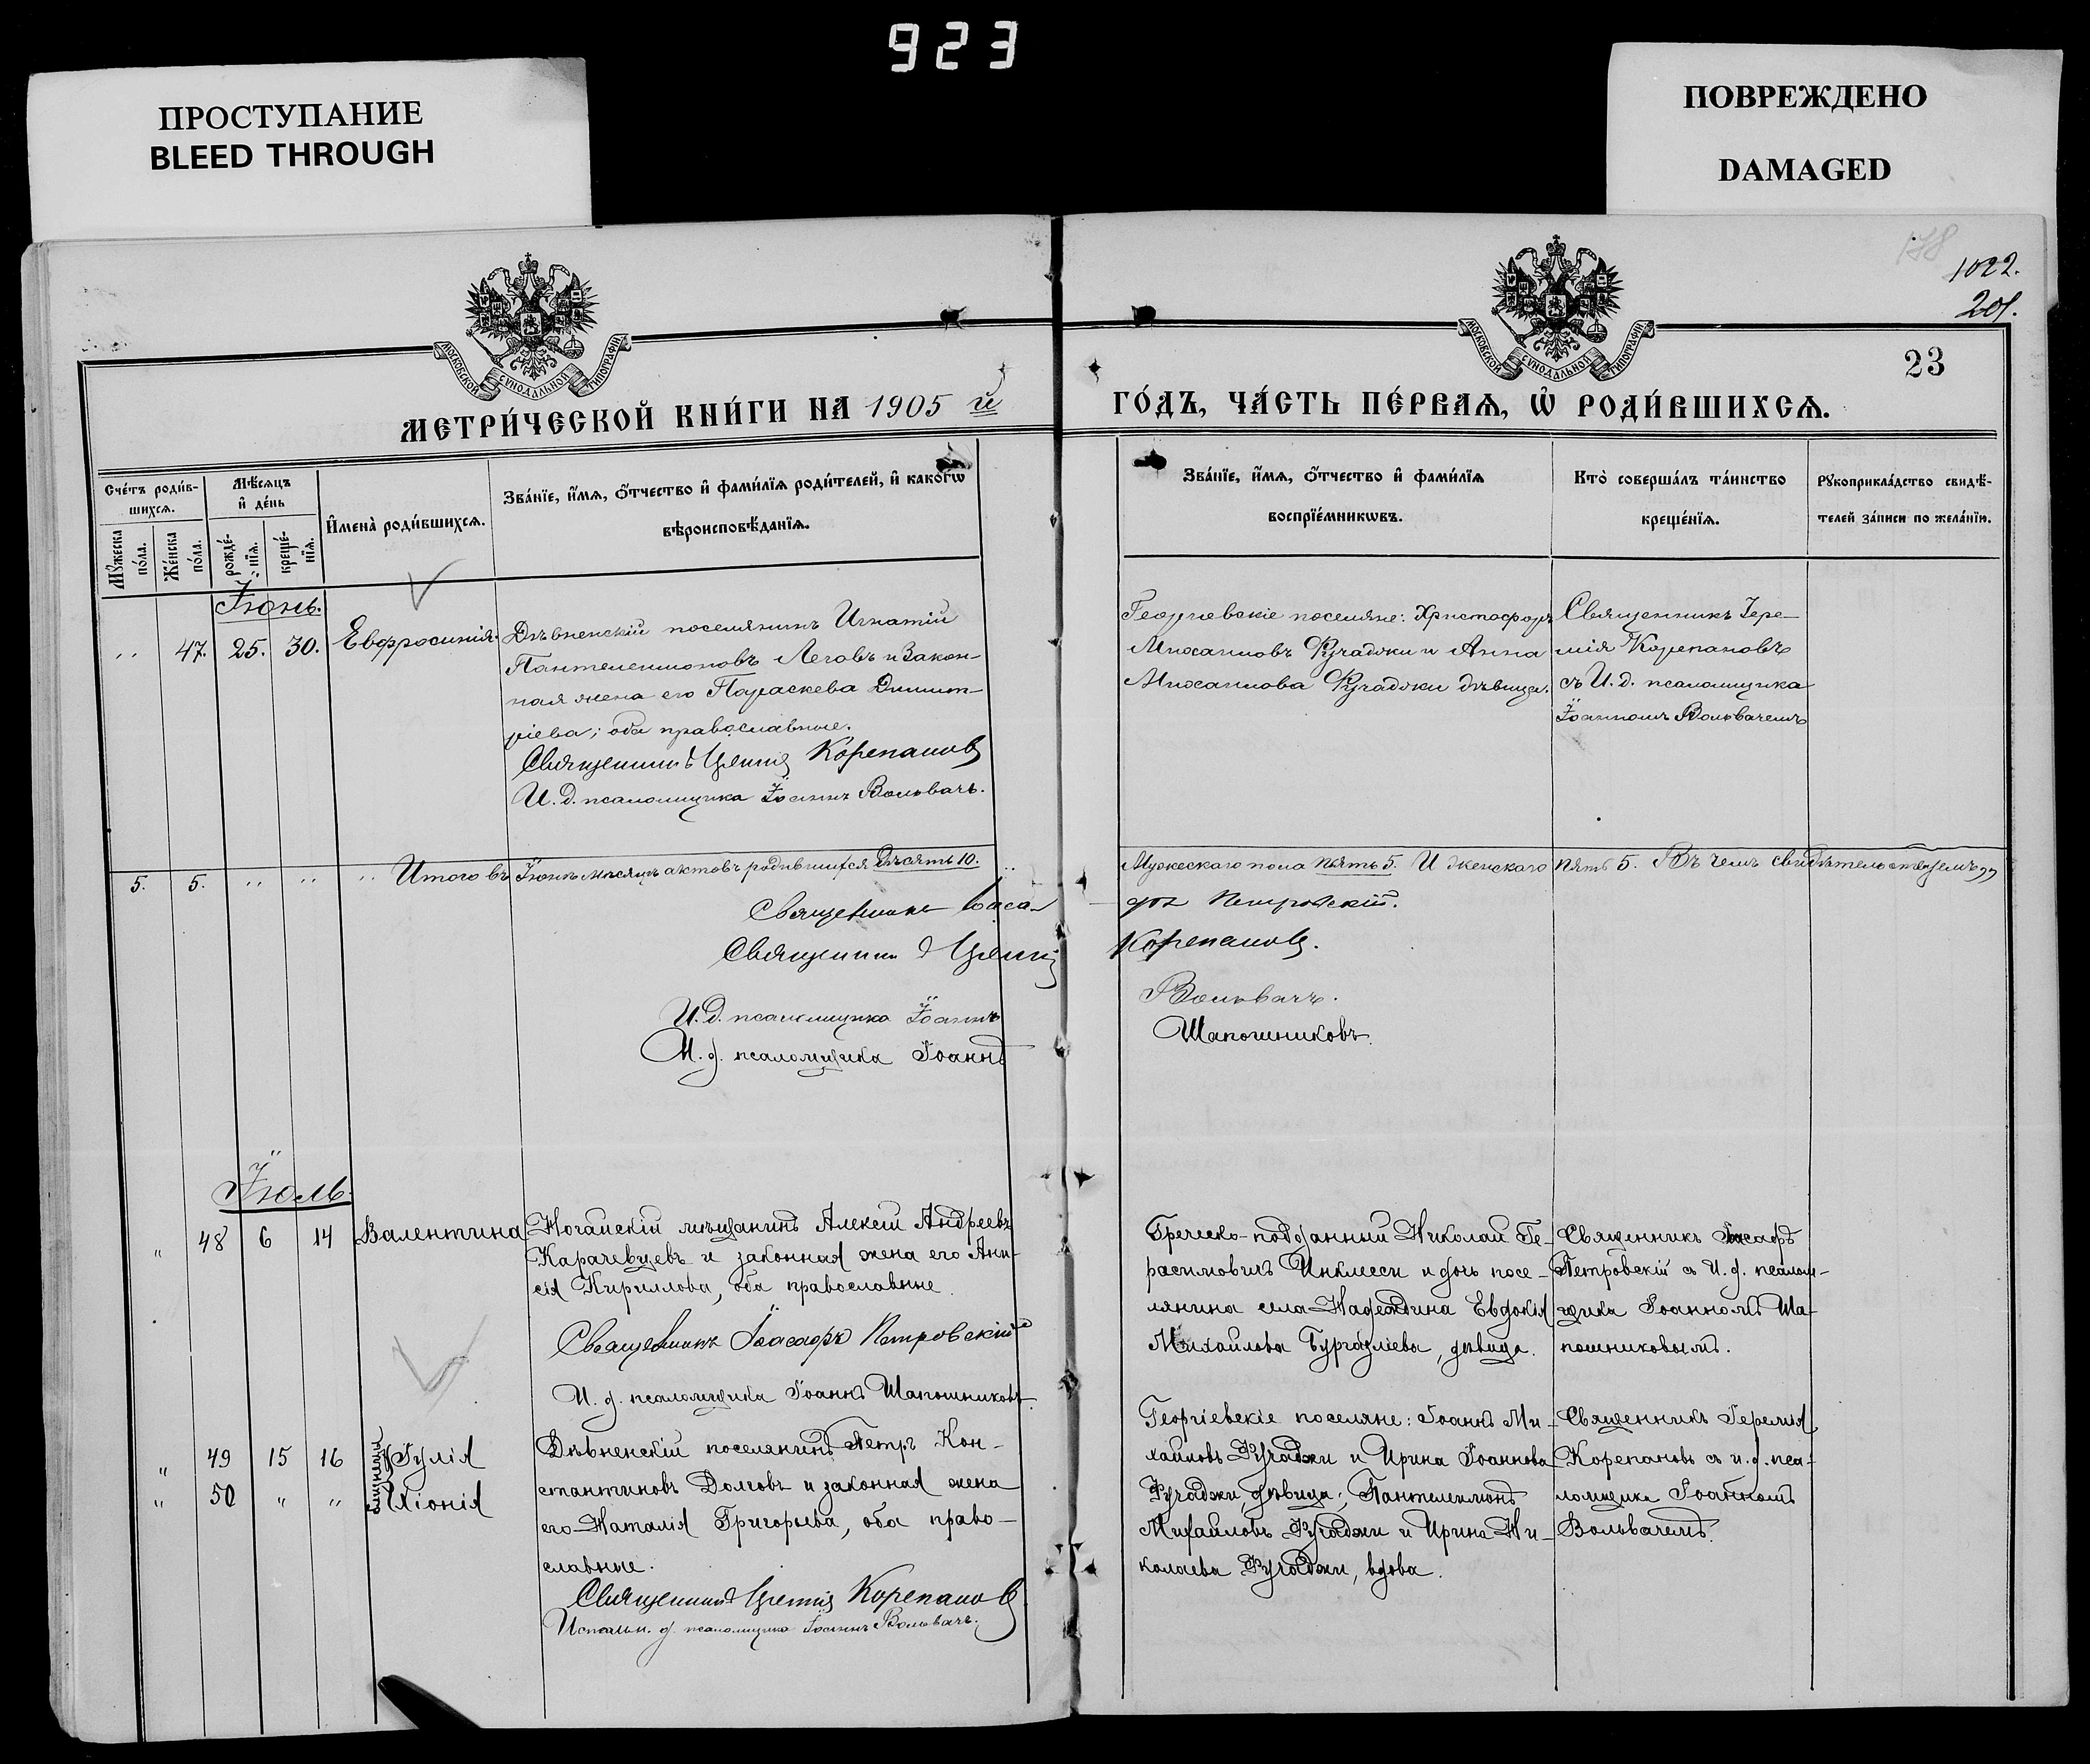 923
ПРОСТУПАНИЕ
BLEED THROUGH
ПОВРЕЖДЕНО
DAMAGED
178
1022.
201.
23
МОСКОВСКОЙ СѴНОДАЛЬНОЙ ТИПОГРАФІИ
МОСКОВСКОЙ СѴНОДАЛЬНОЙ ТИПОГРАФІИ
МЕТРИ́ЧЕСКОЙ КНИ́ГИ НА 1905 й
ГО́ДЪ, ЧА́СТЬ ПЕ́РВАѦ, Ѡ҆ РОДИ́ВШИХСѦ.
Сче́тъ роди́в-
шихсѧ.
Мꙋ́жеска по́ла.
Же́нска по́ла.
Мѣ́сѧцъ
и҆ де́нь
рожде́-
нїѧ.
креще́-
нїѧ.
И҆мена̀ роди́вшихсѧ.
Зва́нїе, и҆́мѧ, ѻ҆́тчество и҆ фами́лїѧ роди́телей, и҆ како́гѡ
вѣроисповѣ́данїѧ.
Зва́нїе, и҆́мѧ, ѻ҆́тчество и҆ фами́лїѧ
воспрїе́мникѡвъ.
Кто̀ соверша́лъ та́инство
креще́нїѧ.
Рꙋкоприкла́дство свидѣ́-
телей за́писи по жела́нїю.
Іюнь.
" 47. 25. 30. Евфросинія.
Дѣвненскій поселянинъ Игнатій
Пантелеимоновъ Леговъ и закон-
ная жена его Параскева Димит-
ріева; оба православные.
Священникъ Іеремія Корепановъ
И. д. псаломщика Іоаннъ Вольвачъ.
Георгіевскіе поселяне: Христофоръ
Михаиловъ Фучаджи и Анна
Михаилова Фучаджи дѣвица.
Священникъ Іере-
мія Корепановъ
съ И. д. псаломщика
Іоанномъ Вольвачемъ
5. 5. " " " Итого въ Іюнѣ мѣсяцѣ актовъ родившихся Десять 10.
Мужескаго пола пять 5. И женскаго пять 5. Въ чемъ свидѣтельствуемъ,,
Священникъ Іоаса-
фъ Петровскій.
Священникъ Іеремія Корепановъ.
И. д. псаломщика Іоаннъ Вольвачъ.
И. д. псаломщика Іоаннъ Шапошниковъ.
Іюль.
" 48 6 14 Валентина
Ногайскій мѣщанинъ Алексій Андреевъ
Карачевцевъ и законная жена его Ани-
сія Кириллова, оба православные.
Священникъ Іоасафъ Петровскій
И. д. псаломщика Іоаннъ Шапошниковъ.
Греческо-подданный Николай Ге-
расимовичъ Инклеси и дочь посе-
лянина села Надеждина Евдокія
Михайлова Бургазліева, дѣвица.
Священникъ Іоасафъ
Петровскій съ И. д. псалом-
щика Іоанномъ Ша-
пошниковымъ.
" 49 15 16 Іулія
" 50 " " Хіонія
близнецы
Дѣвненскій поселянинъ Петръ Кон-
стантиновъ Долговъ и законная жена
его Наталія Григорьева, оба право-
славные.
Священникъ Іеремія Корепановъ
Исполн. д. псаломщика Іоаннъ Вольвачъ.
Георгіевскіе поселяне: Іоаннъ Ми-
хаиловъ Фучаджи и Ирина Іоаннова
Фучаджи, дѣвица; Пантелеимонъ
Михаиловъ Фучаджи и Ирина Ни-
колаева Фучаджи, вдова.
Священникъ Іеремія
Корепановъ съ и. д. пса-
ломщика Іоанномъ
Вольвачемъ.